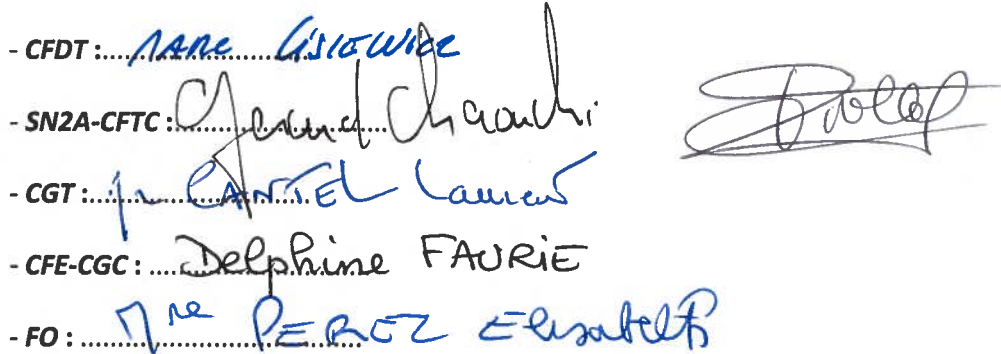 - CFDT : MARC LISIEWICZ
- SN2A-CFTC : Chaouchi
- CGT : Mr CANTEL Laurent
- CFE-CGC : Delphine FAURIE
- FO : Mme PEREZ Elisabeth